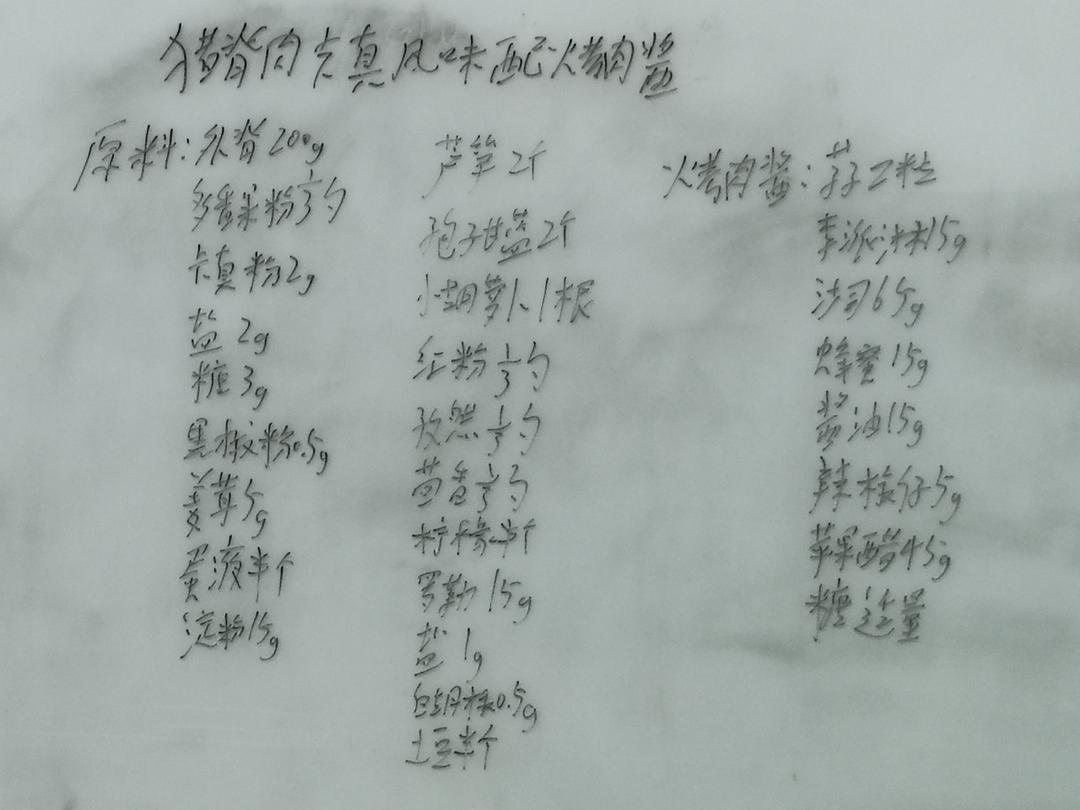 猪脊肉卡真风味配火烤肉酱
原料:外脊200g
多香果粉1/3勺
卡真粉2g
盐 2g
糖 3g
黑椒粉0.5g
姜茸5g
蛋液半个
淀粉15g
芦笋 2个
孢子甘蓝2个
小胡萝卜1根
红粉1/3勺
孜然1/3勺
茴香1/3勺
柠檬半个
罗勒 15g
盐 1g
白胡椒0.5g
土豆半个
火烤肉酱:芥子2粒
李派林15g
沙司65g
蜂蜜15g
酱油15g
辣椒仔5g
苹果醋45g
糖适量